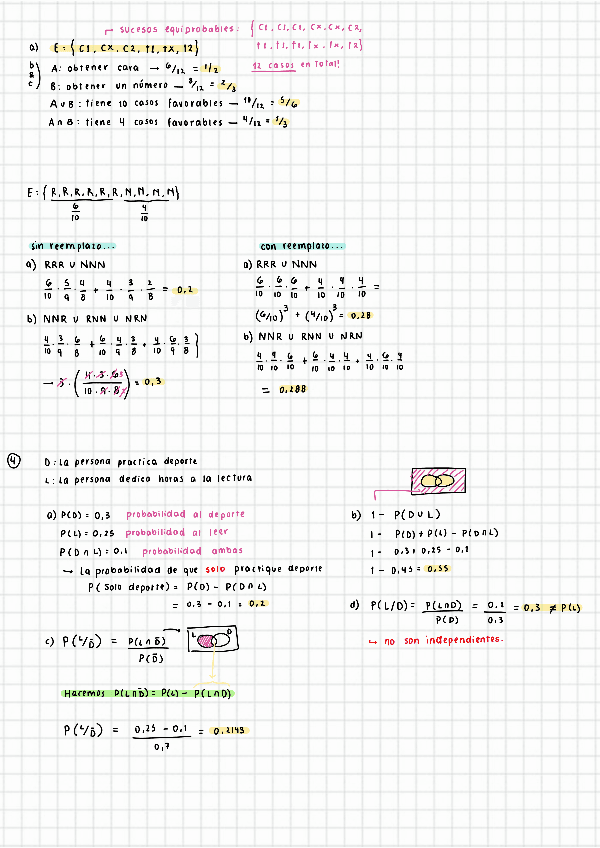 sucesos equiprobables: { C1, C1, C1, CX, CX, C2,
t1, t1, t1, tx, tx, t2}
a) E = { C1, CX, C2, t1, tX, t2 }
12 casos en total!
b) A: obtener cara → 6/12 = 1/2
B: obtener un número — 8/12 = 2/3
c) A∪B: tiene 10 casos favorables — 10/12 = 5/6
A∩B: tiene 4 casos favorables — 4/12 = 1/3
E: { R, R, R, R, R, R, N, N, N, N}
6/10 4/10
sin reemplazo...
a) RRR ∪ NNN
6/10 · 5/9 · 4/8 + 4/10 · 3/9 · 2/8 = 0,2
b) NNR ∪ RNN ∪ NRN
4/10 · 3/9 · 6/8 + 6/10 · 4/9 · 3/8 + 4/10 · 6/9 · 3/8
→ 3 · (4·3·6 / 10·9·8) = 0,3
con reemplazo...
a) RRR ∪ NNN
6/10 · 6/10 · 6/10 + 4/10 · 4/10 · 4/10 =
(6/10)³ + (4/10)³ = 0,28
b) NNR ∪ RNN ∪ NRN
4/10 · 4/10 · 6/10 + 6/10 · 4/10 · 4/10 + 4/10 · 6/10 · 4/10
= 0,288
4
D: La persona practica deporte
L: La persona dedica horas a la lectura
a) P(D) = 0,3 probabilidad al deporte
P(L) = 0,25 probabilidad al leer
P(D ∩ L) = 0.1 probabilidad ambas
→ La probabilidad de que solo practique deporte
P(Solo deporte) = P(D) - P(D ∩ L)
= 0.3 - 0.1 = 0,2
b) 1 - P(D ∪ L)
1 - P(D) + P(L) - P(D∩L)
1 - 0.3 + 0,25 - 0,1
1 - 0,45 = 0,55
c) P(L/D̄) = P(L∩D̄) / P(D̄)
L D
Hacemos P(L∩D̄) = P(L) - P(L∩D)
P(L/D̄) = 0,25 - 0,1 / 0,7 = 0.2143
d) P(L/D) = P(L∩D) / P(D) = 0.1 / 0.3 = 0,3 ≠ P(L)
↳ no son independientes.